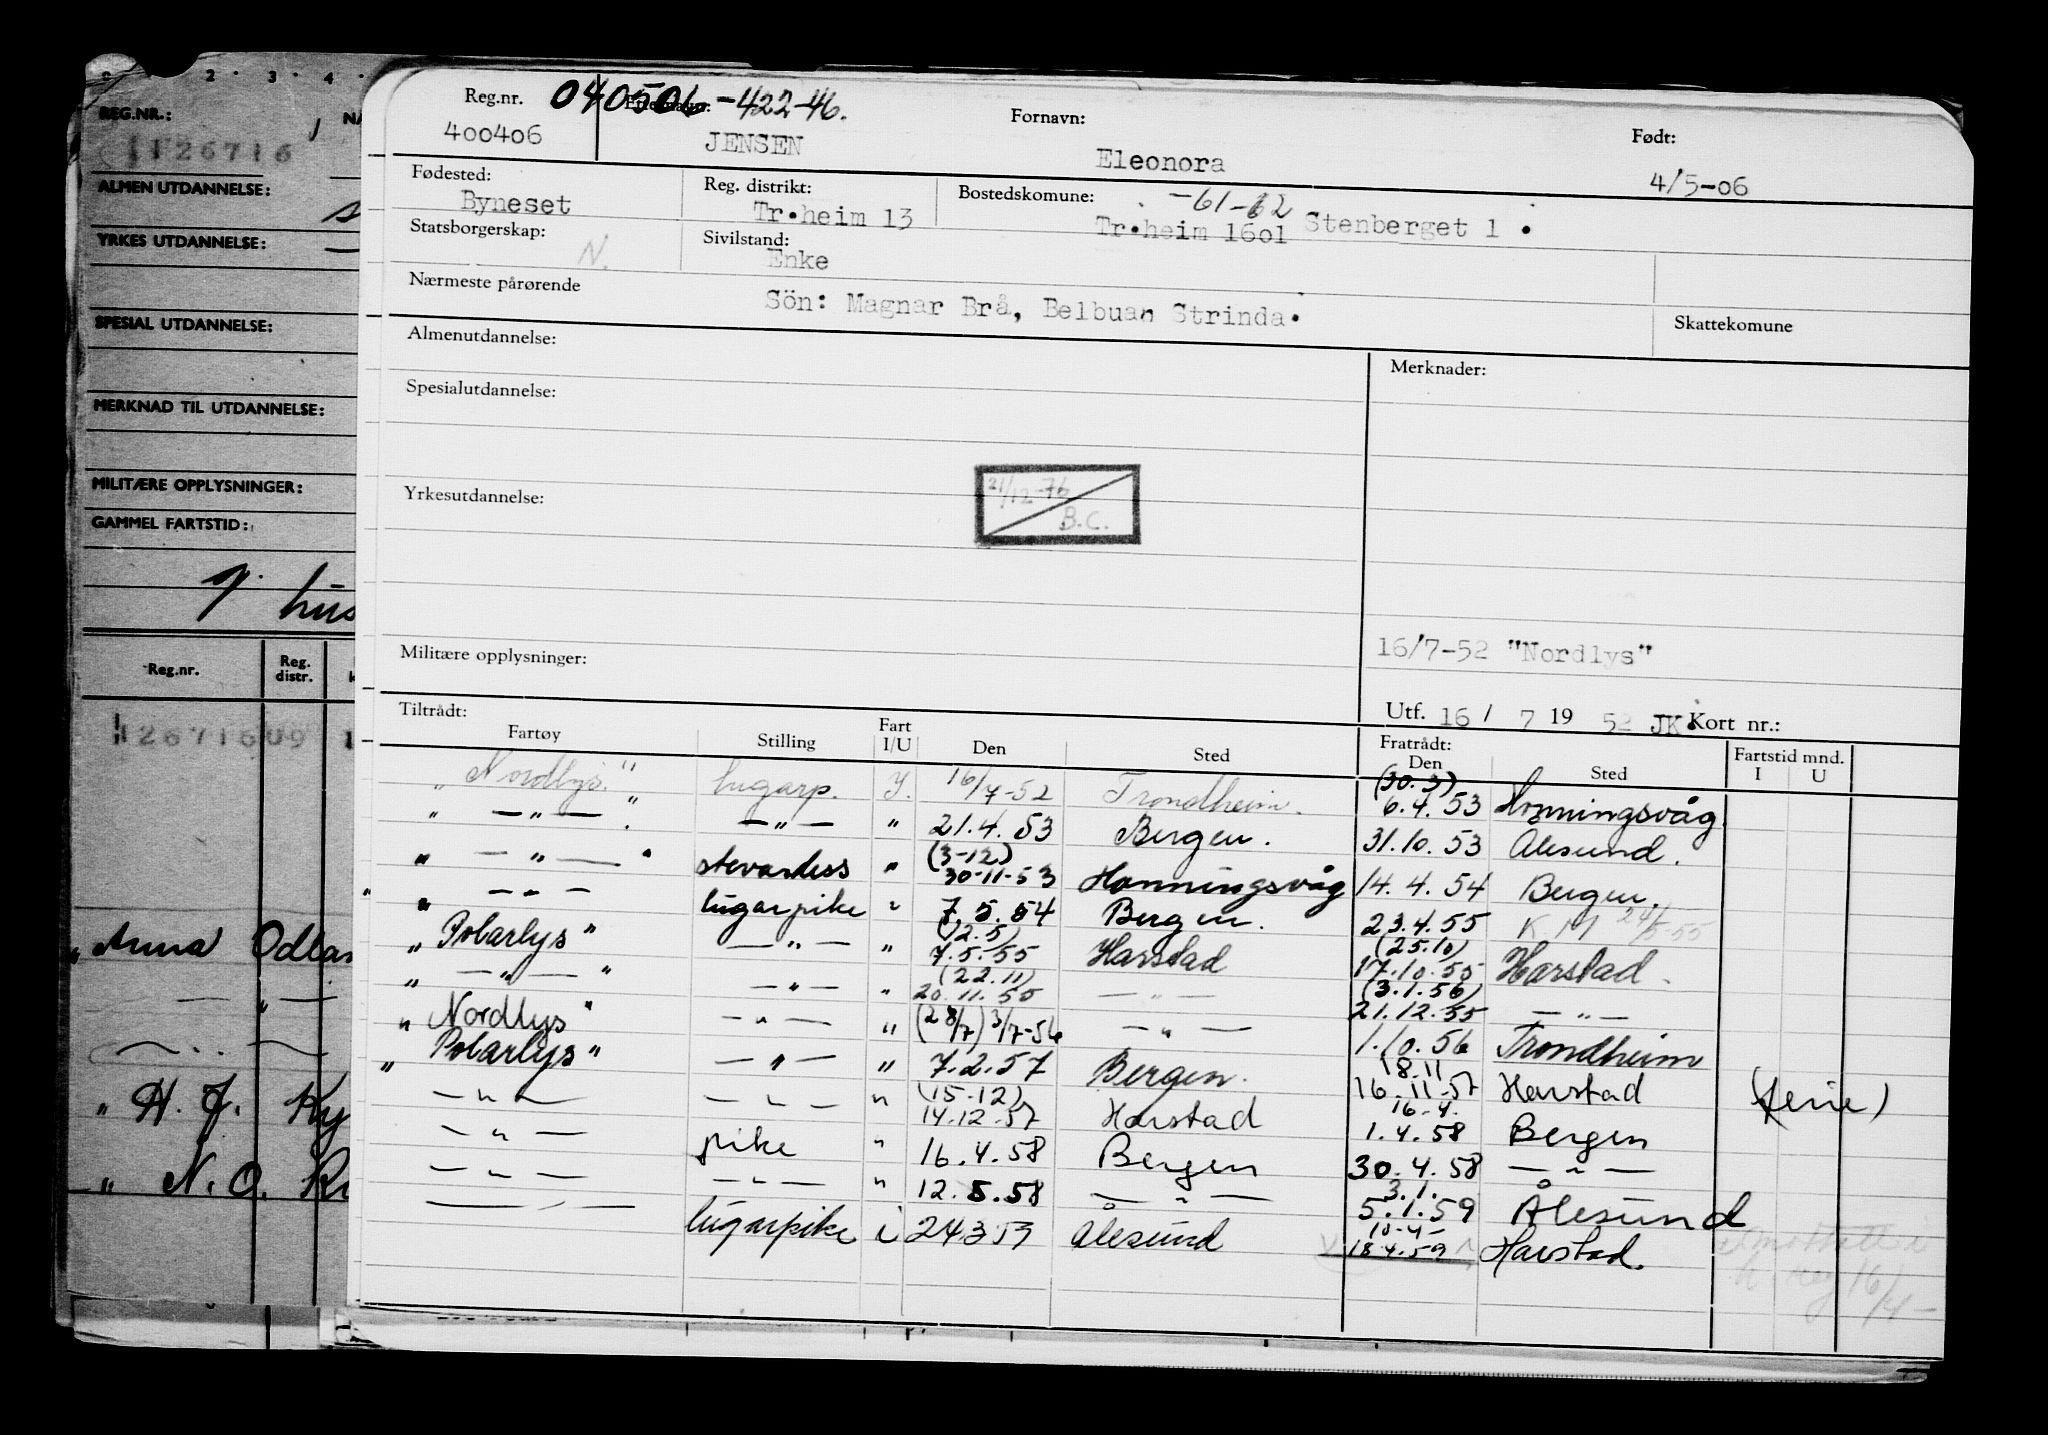 2 · 3 · 4 ·
REG.NR.:
126716
ALMEN UTDANNELSE:
YRKES UTDANNELSE:
SPESIAL UTDANNELSE:
MERKNAD TIL UTDANNELSE:
MILITÆRE OPPLYSNINGER:
GAMMEL FARTSTID:
Reg.nr. Reg. distr.
12671609
"Anna
"H. J.
"N. O.
Reg.nr. 040506-422-46. Fornavn: Født:
400406 JENSEN Eleonora 4/5-06
Fødested: Reg. distrikt: Bostedskomune: -61-62
Byneset Tr.heim 13 Tr.heim 1601 Stenberget 1 .
Statsborgerskap: N. Sivilstand: Enke
Nærmeste pårørende Sön: Magnar Brå, Belbuan Strinda.
Skattekomune
Almenutdannelse: Merknader:
Spesialutdannelse:
Yrkesutdannelse:
21/12-76 B.C.
Militære opplysninger: 16/7-52 "Nordlys"
Utf. 16 / 7 19 52 JK. Kort nr.:
Tiltrådt: Fratrådt: Fartstid mnd.
Fartøy Stilling Fart I/U Den Sted Den Sted I U
"Nordlys" lugarp. I. 16/7-52 Trondheim. (30.3) 6.4.53 Honningsvåg
" — " — " — " — " 21.4.53 Bergen. 31.10.53 Ålesund.
" — " — " stevardess " (3-12) 30-11-53 Honningsvåg 14.4.54 Bergen.
" — " — " lugarpike " 7.5.54 Bergen. 23.4.55 24/5-55
"Polarlys" — " — " (12.5) 7.5.55 Harstad (25.10) 17.10.55 Harstad
" — " — " — " — " (22.11) 20.11.55 — " — (3.1.56) 21.12.55 — " —
"Nordlys" — " — " (28/7) 3/7-56 — " — 1.10.56 Trondheim
"Polarlys" — " — " 7.2.57 Bergen. 18.11 16.11.57 Harstad (ferie)
— " — — " — " (15-12) 14.12.57 Harstad 16-4. 1.4.58 Bergen
— " — pike " 16.4.58 Bergen 30.4.58 — " —
— " — — " — " 12.5.58 — " — 3.1. 5.1.59 Ålesund
— " — lugarpike i 24359 Ålesund 10-4- 18.4.59 Harstad.
16/4-